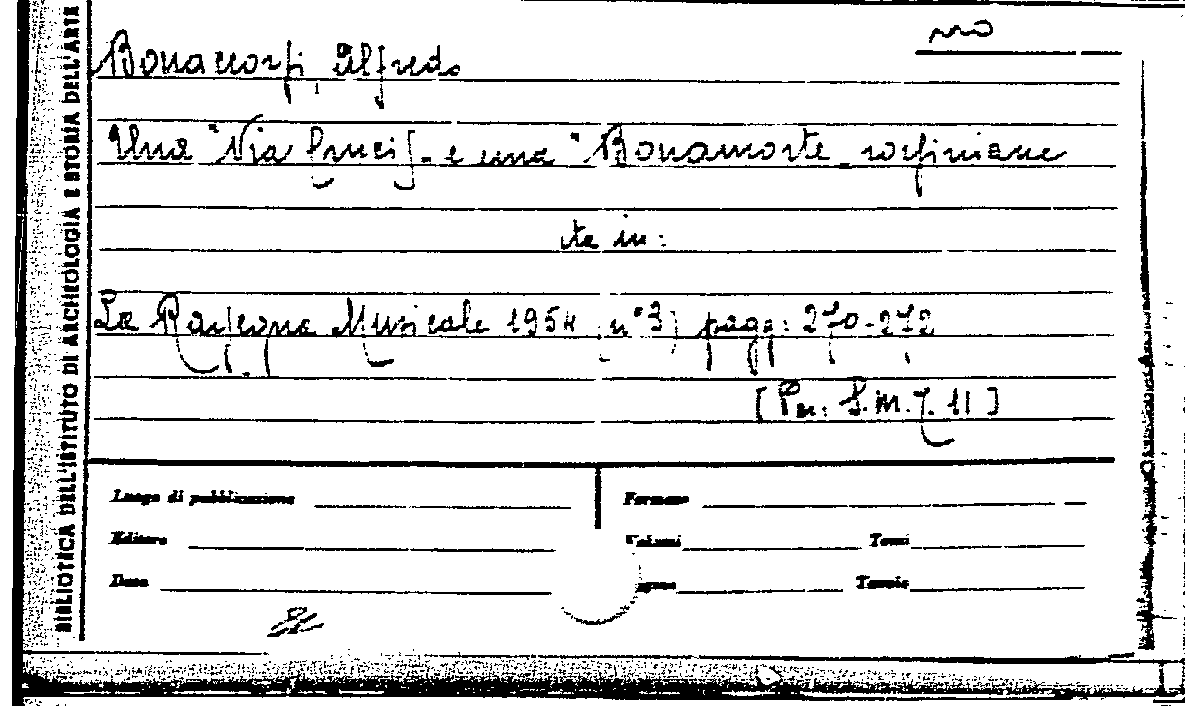 Bonaccorsi, Alfredo
Una "Via Crucis" e una "Bonamorte" rossiniane
sta in:
La Rassegna Musicale 1954 (n° 3) pagg: 270-272
[Per: S.M.J. 11]
Luogo di pubblicazione
Formato
Editore
Volumi
Tomi
Data
Pagine
Tavole
BIBLIOTECA DELL'ISTITUTO DI ARCHEOLOGIA E STORIA DELL'ARTE